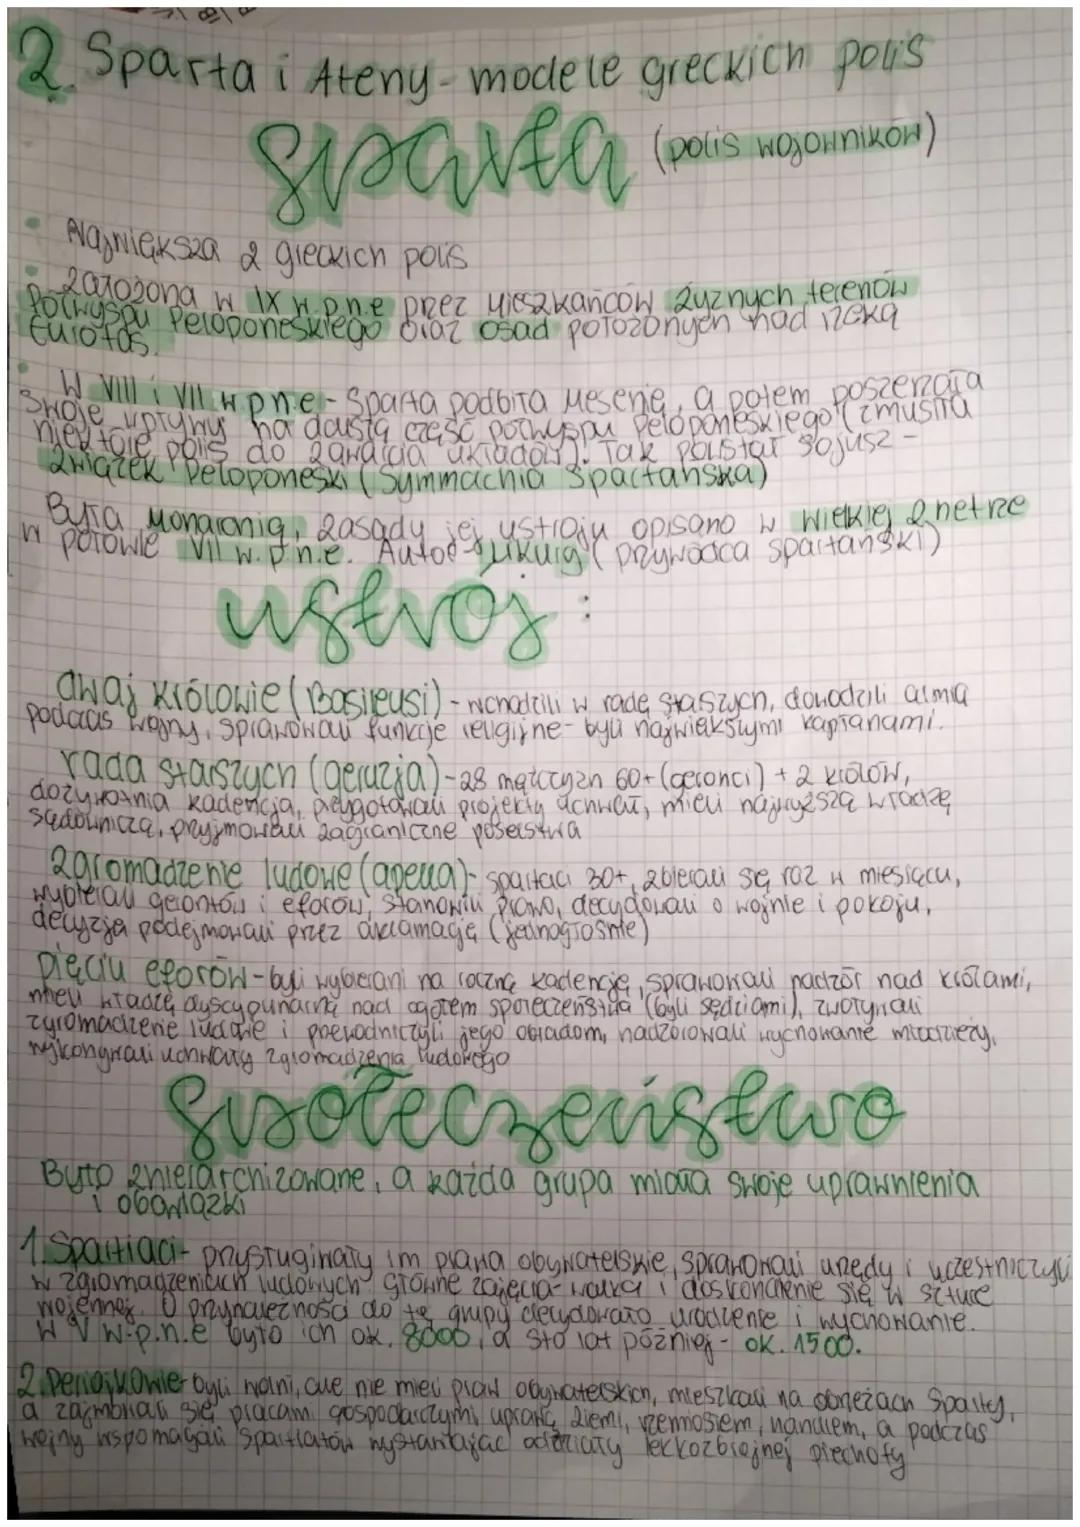 2. Sparta i Ateny - modele greckich polis
Sparta (polis wojowników)
Największa z greckich polis
założona w IX w.p.n.e przez mieszkańców żyznych terenów
Półwyspu Peloponeskiego oraz osad położonych nad rzeką
Eurotas.
W VIII i VII w p.n.e - Sparta podbiła Mesenię, a potem poszerzała
swoje wpływy na dalszą część półwyspu Peloponeskiego (zmusiła
niektóre polis do zawarcia układów). Tak powstał sojusz -
Związek Peloponeski (Symmachia Spartańska)
Była monarchią, zasady jej ustroju opisano w Wielkiej Rhetrze
w połowie VII w.p.n.e. Autor - Likurg (przywódca spartański)
ustrój :
dwaj królowie (Basileusi) - wchodzili w radę starszych, dowodzili armią
podczas wojny, sprawowali funkcje religijne - byli największymi kapłanami.
rada starszych (geruzja) - 28 mężczyzn 60+ (geronci) + 2 królów,
dożywotnia kadencja, przygotowali projekty uchwał, mieli najwyższą władzę
sądowniczą, przyjmowali zagraniczne poselstwa
zgromadzenie ludowe (apella) - spartaci 30+, zbierali się raz w miesiącu,
wybierali gerontów i eforów, stanowili prawo, decydowali o wojnie i pokoju,
decyzja podejmowali przez aklamację (jednogłośnie)
pięciu eforów - byli wybierani na roczną kadencję, sprawowali nadzór nad królami,
mieli władzę dyscyplinarną nad ogółem społeczeństwa (byli sędziami), zwoływali
zgromadzenie ludowe i przewodniczyli jego obradom, nadzorowali wychowanie młodzieży,
wykonywali uchwały zgromadzenia ludowego
społeczeństwo
Było zhierarchizowane, a każda grupa miała swoje uprawnienia
i obowiązki
1. Spartiaci - przysługiwały im prawa obywatelskie, sprawowali urzędy i uczestniczyli
w zgromadzeniach ludowych. główne zajęcia - walka i doskonalenie się w sztuce
wojennej. O przynależności do tę grupy decydowało urodzenie i wychowanie.
W V w.p.n.e było ich ok. 8000, a sto lat później - ok. 1500.
2. Periojkowie - byli wolni, ale nie mieli praw obywatelskich, mieszkali na obrzeżach Sparty,
a zajmowali się pracami gospodarczymi, uprawą ziemi, rzemiosłem, handlem, a podczas
wojny wspomagali Spartiatów wystawiając oddziały lekkozbrojnej piechoty